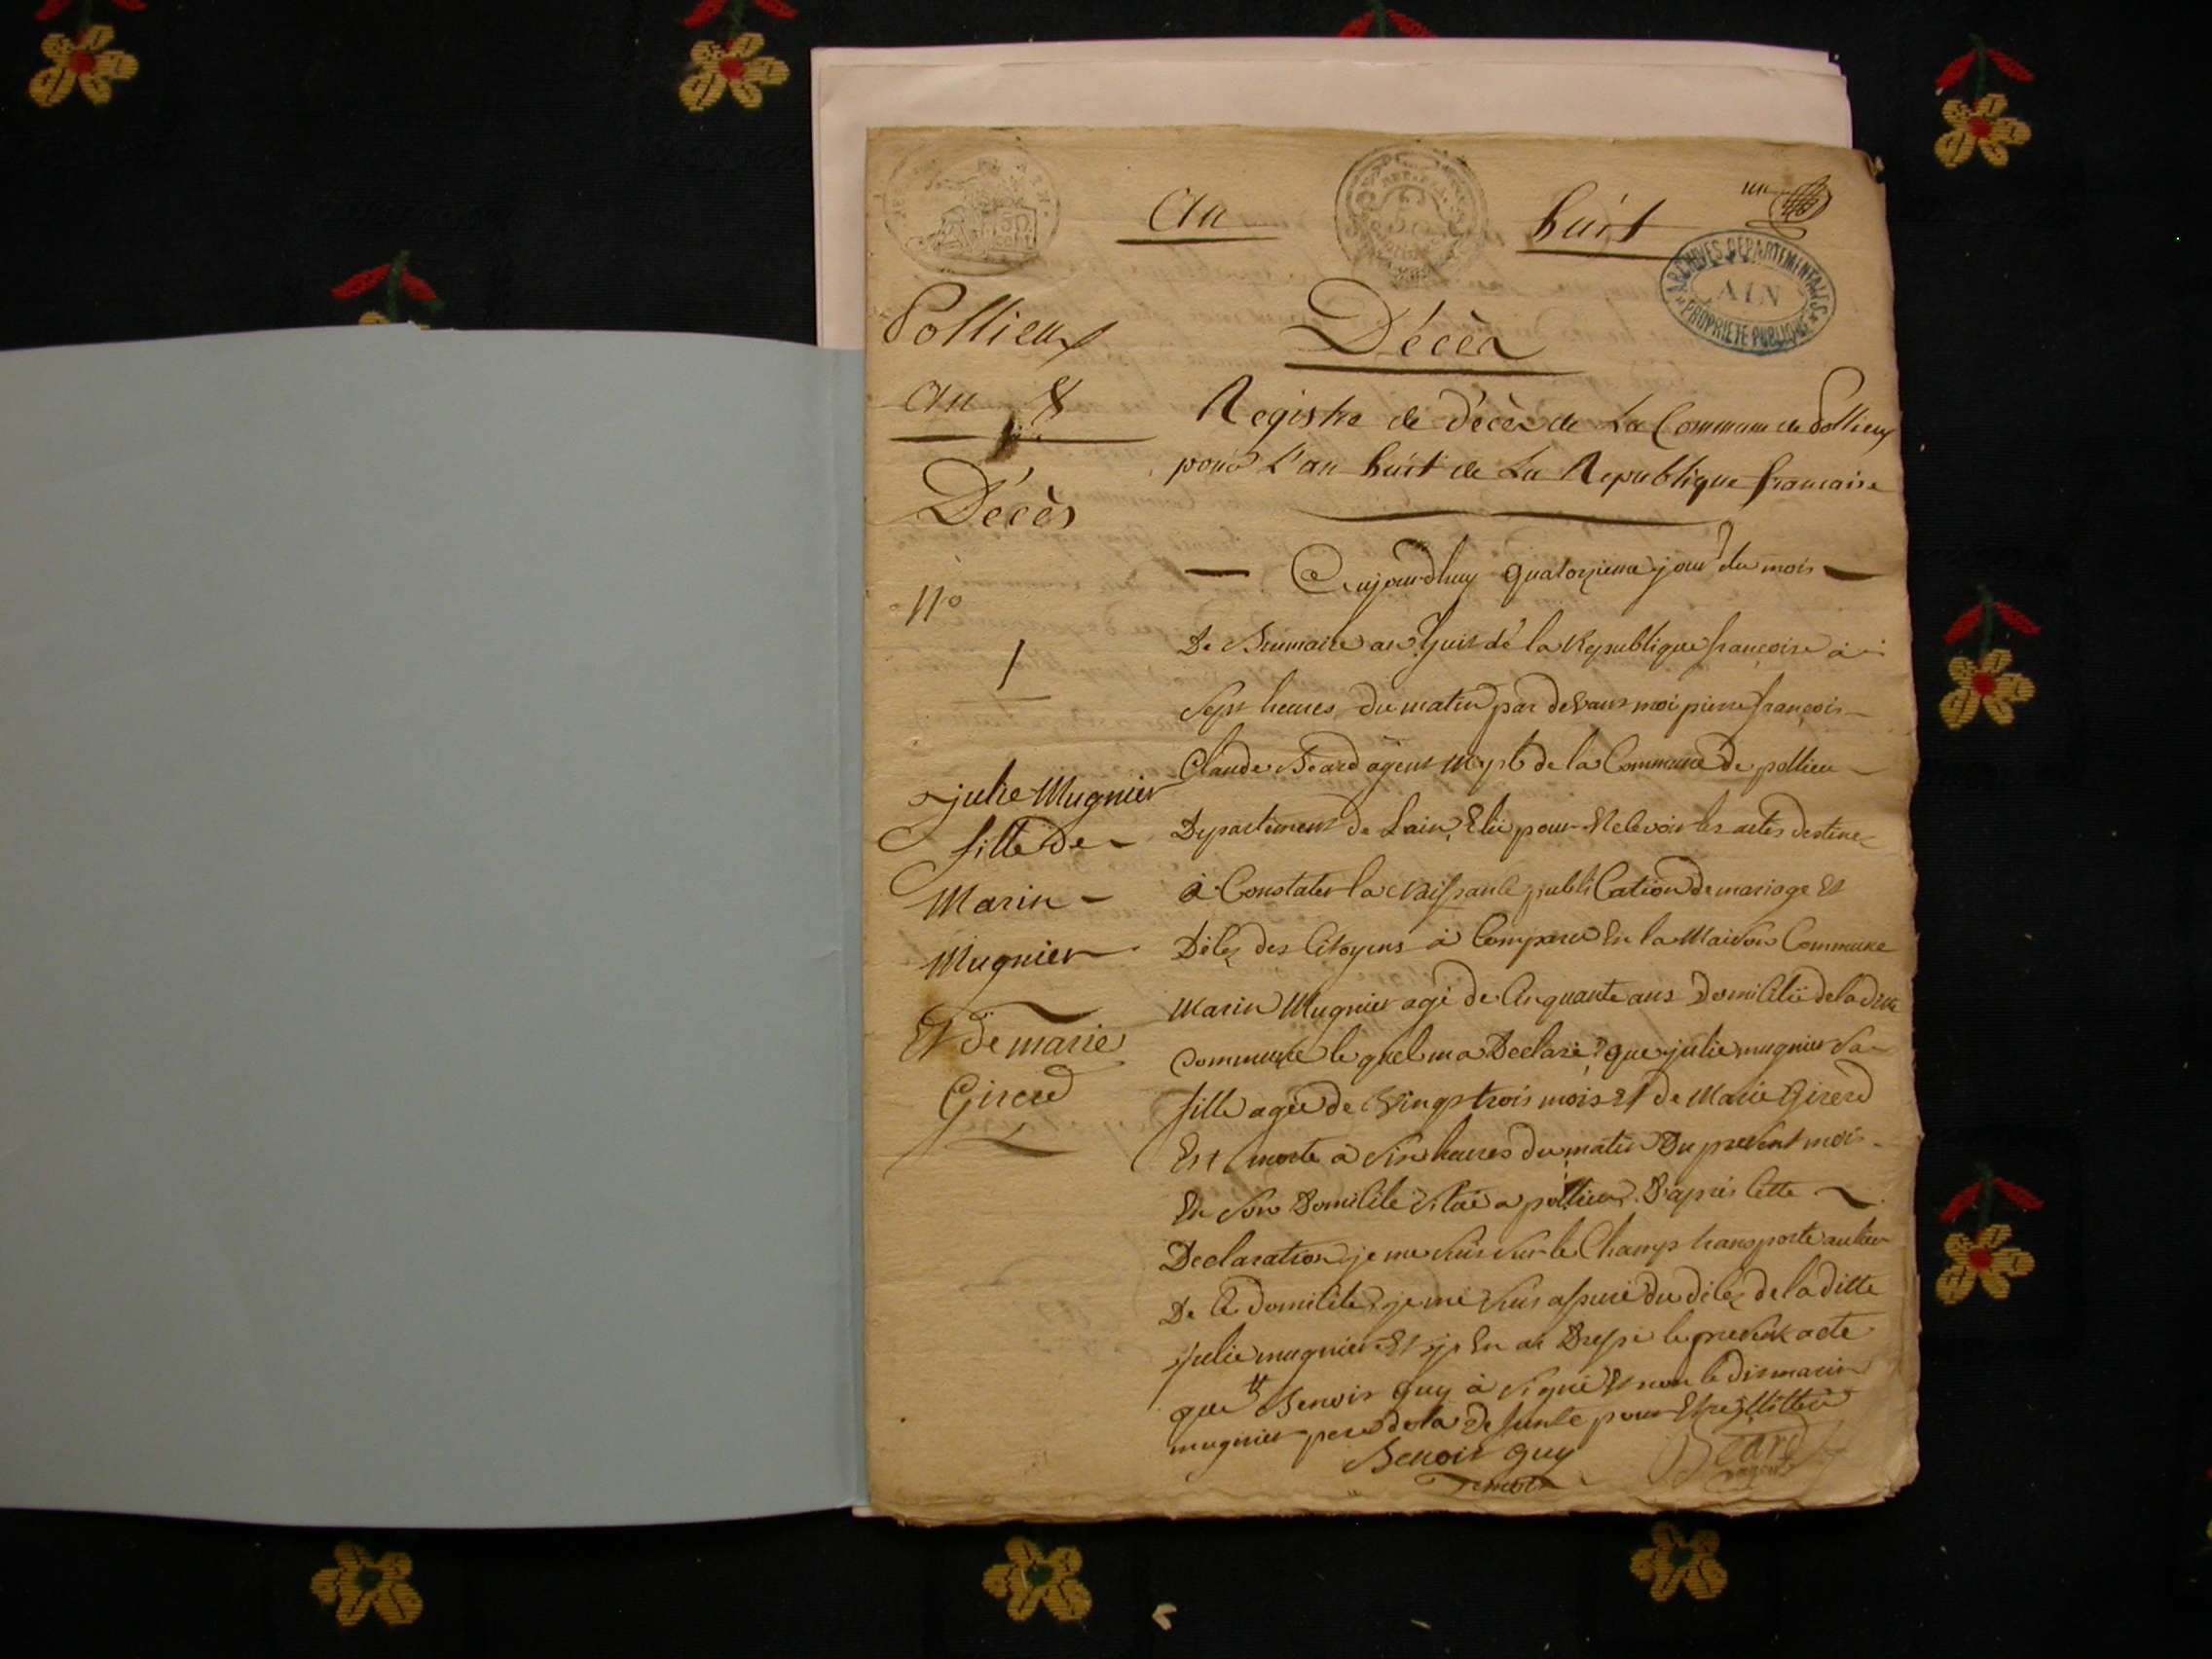 an huit un
ARCHIVES DÉPARTEMENTALES
AIN
PROPRIÉTÉ PUBLIQUE
Pollieux
an 8
Décès
Décès
Registre de Décès de La Commune de Pollieux
pour L'an huit de La Republique francaise
N°
1
julie Mugnier
fille de
Marin
Mugnier
Et de marie
Girerd
Aujourdhuy quatorzieme jour du mois
De Brumaire an huit de la Republique françoise à
Sept heures du matin par devant moi pierre françois
Claude Béard agent mpl de la Commune de pollieu
Departement de Lain, Elû pour Recevoir les actes destinez
à Constater la Naissance publication de mariage Et
Décez des Citoyens à Comparu En la Maison Commune
Marin Mugnier agé de Cinquante ans Domicilié de la ditte
commune le quel ma Declaré que julie mugnier Sa
fille agée de Vingt trois mois Et de Marie Girerd
Est morte à Six heures du matin Du present mois
En Son Domicile Situé a pollieu. D'après Cette
Declaration je me Suis Sur le Champ transporté au lieu
De Ce domicile je me Suis assuré du décez de la ditte
julie mugnier Et j'En ai Dressé le present acte
que Benoit Guy à Signé Et non le dit marin
mugnier pere de la defunte pour Etre illitteré
Benoit Guy
Temoin
Béard
agent